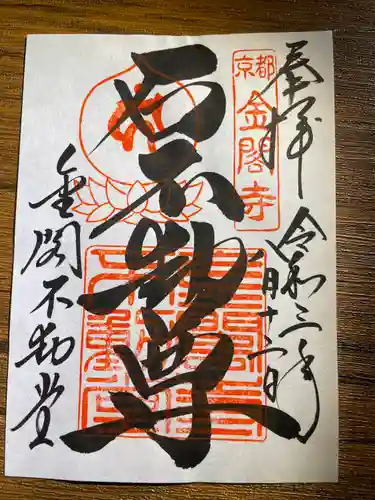 奉拝
令和三年
一月十二日
京都
金閣寺
石不動尊
金閣不動堂